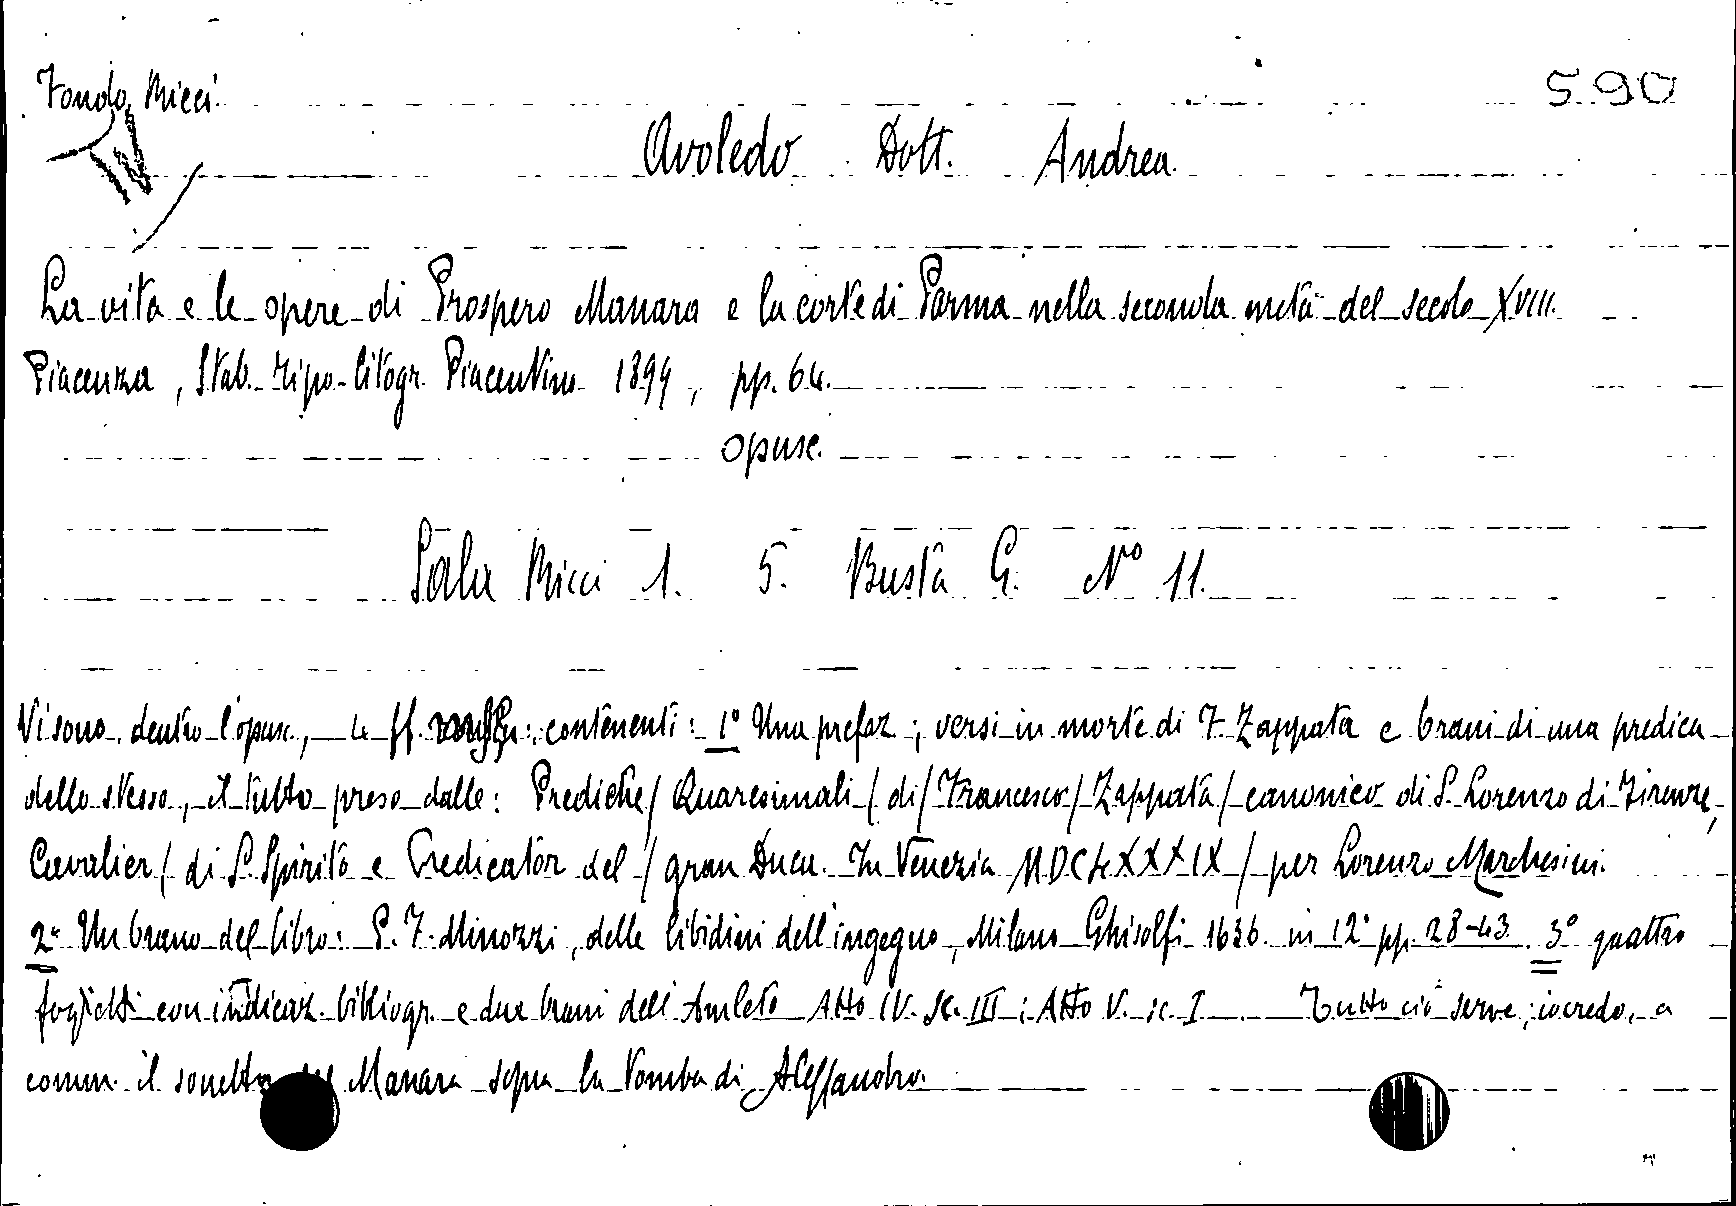 Fondo Micci.
590
Avoledo Dott. Andrea
La vita e le opere di Prospero Manara e la corte di Parma nella seconda metà del secolo XVIII.
Piacenza, Stab. tipo-litogr. Piacentino 1899, pp. 64.
opusc.
Sala Micci 1. 5. Busta G. N° 11.
Vi sono dentro l'opusc., 4 ff. contenenti: 1° Una prefaz.; versi in morte di F. Zappata e brani di una predica
dello stesso, il tutto preso dalle: Prediche / Quaresimali / di / Francesco / Zappata / canonico di S. Lorenzo di Firenze,
Cavalier / di S. Spirito e Predicator del / gran Duca. In Venezia MDCLXXXIX / per Lorenzo Marchesini.
2° Un brano del libro: P. F. Minozzi, delle libidini dell'ingegno, Milano Ghisolfi 1636 in 12° pp. 28-43. 3° quattro
foglietti con indicaz. bibliogr. e due brani dell'Amleto Atto IV. Sc. III; Atto V. sc. I. Tutto ciò serve, io credo, a
comm. il sonetto del Manara sopra la tomba di Alessandro.